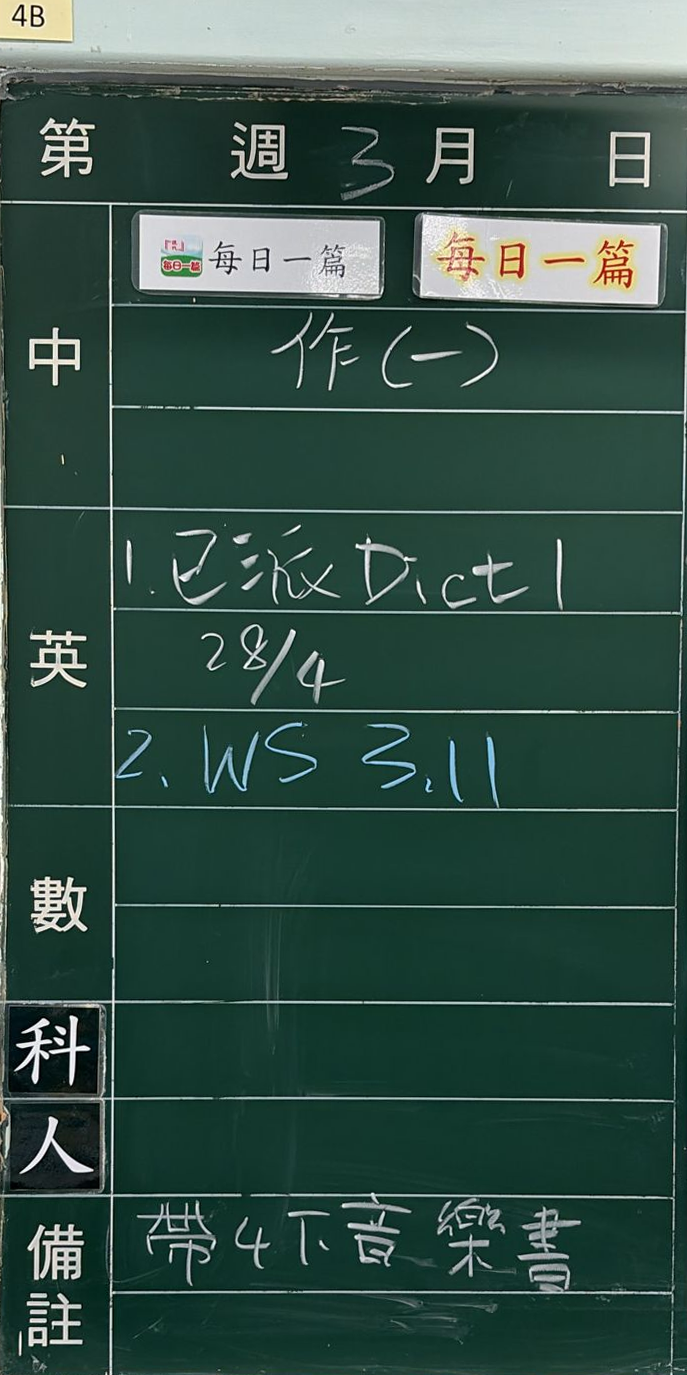 4B
第 週 3 月 日
中
每日一篇 每日一篇
作(一)
英
1. 已派 Dict 1
28/4
2. WS 3.11
數
科
人
備註
帶4下音樂書